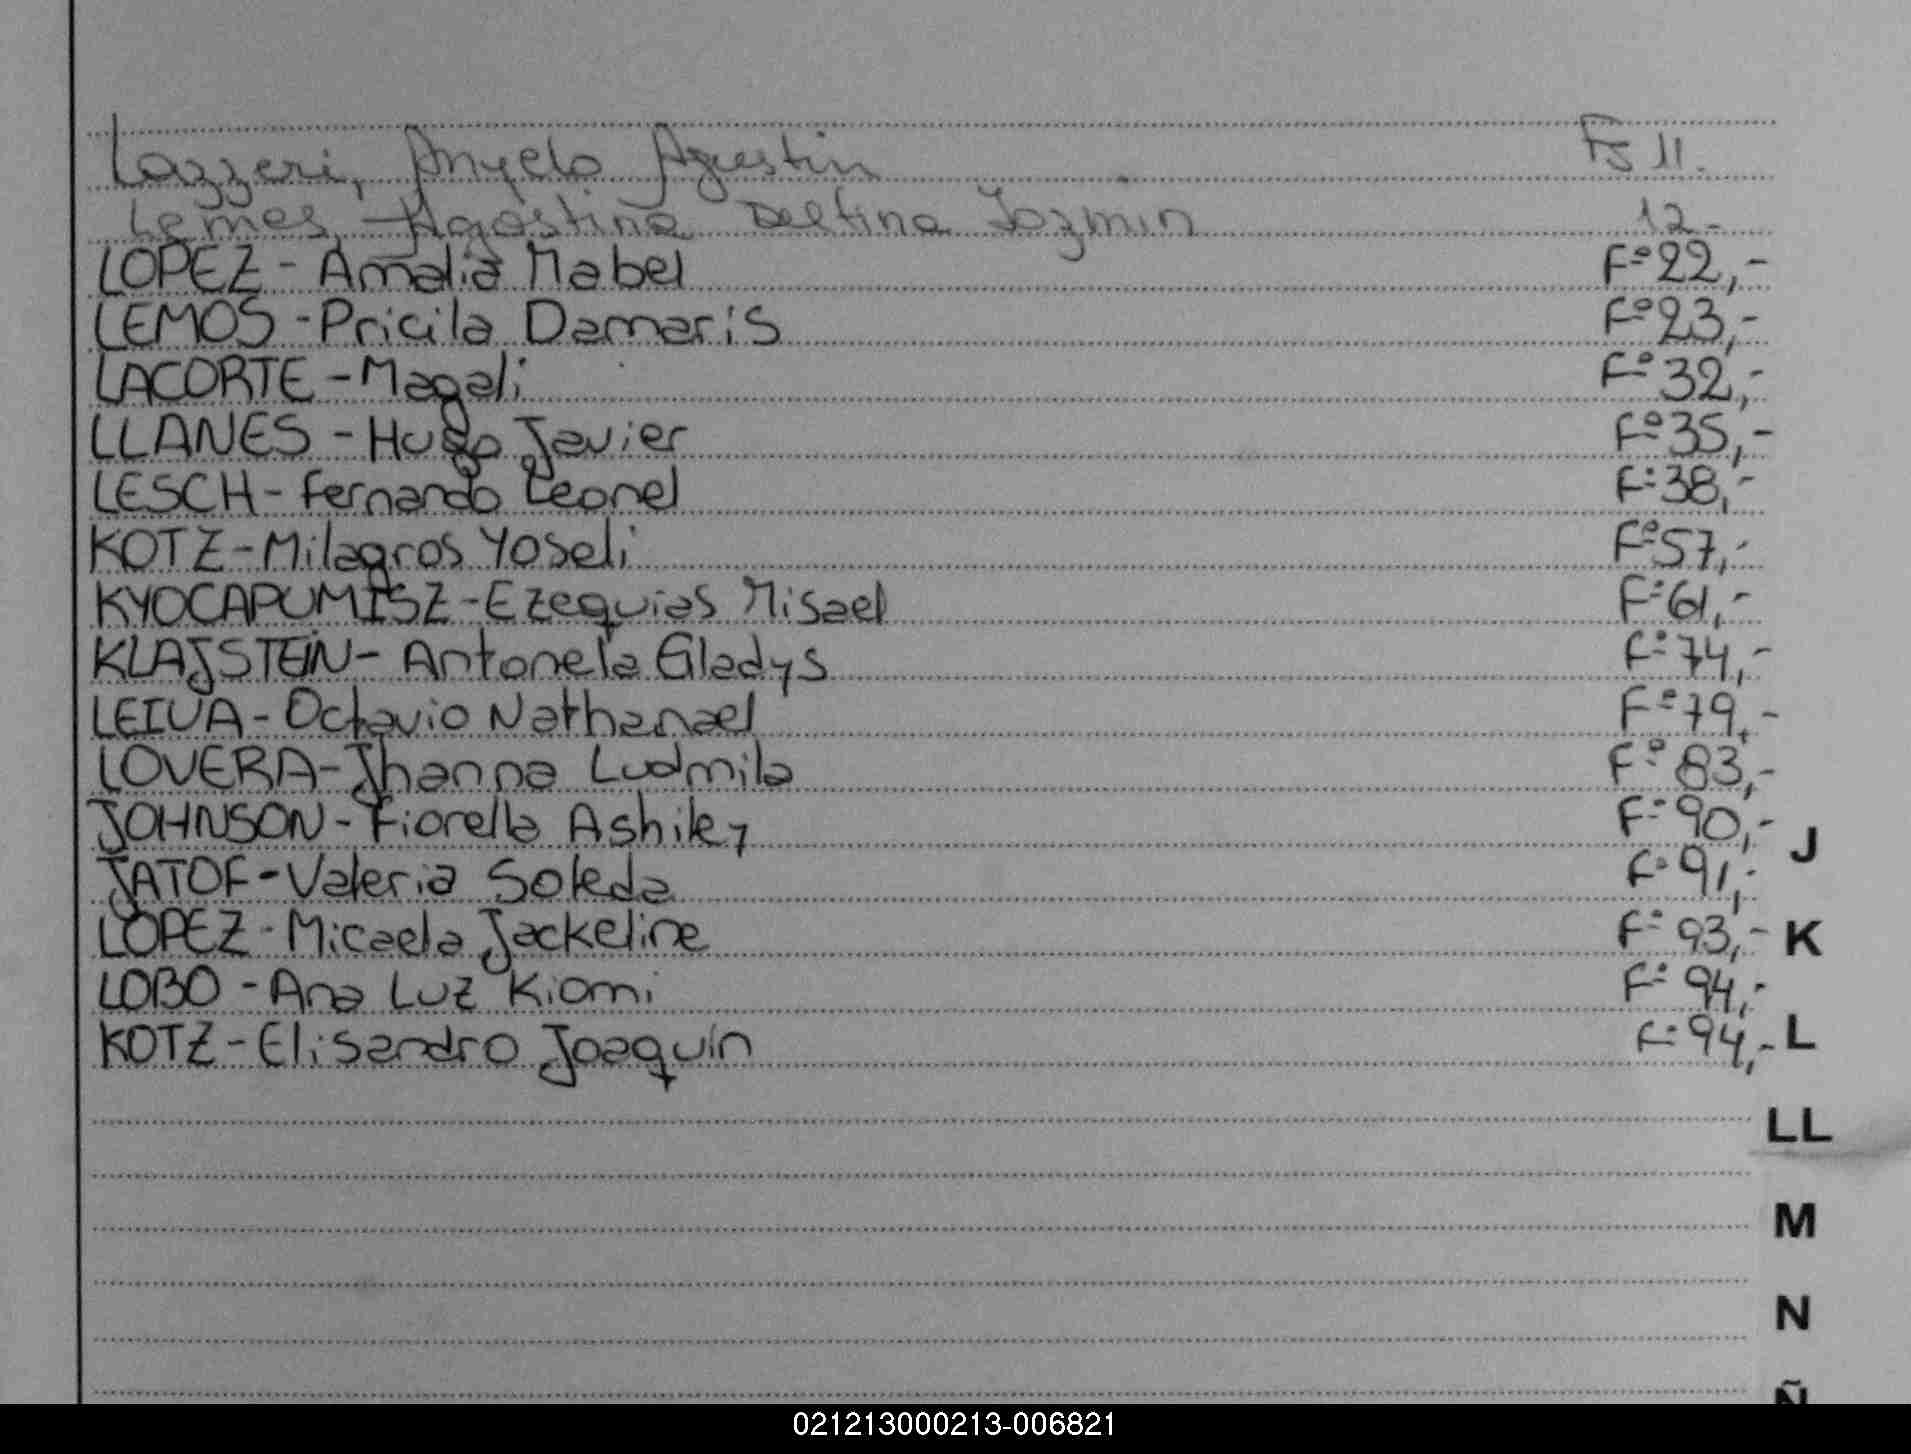 Lazzeri, Anyelo Agustin Fs 11.
Lemes, Agostina Delfina Jazmin 12-
LOPEZ - Amalia Mabel Fº 22,-
LEMOS - Pricila Damaris Fº 23,-
LACORTE - Magali Fº 32,-
LLANES - Hugo Javier Fº 35,-
LESCH - Fernando Leonel Fº 38,-
KOTZ - Milagros Yoseli Fº 57,-
KYOCAPUMISZ - Ezequias Misael Fº 61,-
KLAJSTEIN - Antonela Gladys Fº 74,-
LEIVA - Octavio Nathanael Fº 79,-
LOVERA - Jhanna Ludmila Fº 83,-
JOHNSON - Fiorella Ashiley Fº 90,-
J
JATOF - Valeria Soleda Fº 91,-
LOPEZ - Micaela Jackeline Fº 93,-
K
LOBO - Ana Luz Kiomi Fº 94,-
KOTZ - Elisandro Joaquín Fº 94,-
L
LL
M
N
Ñ
021213000213-006821